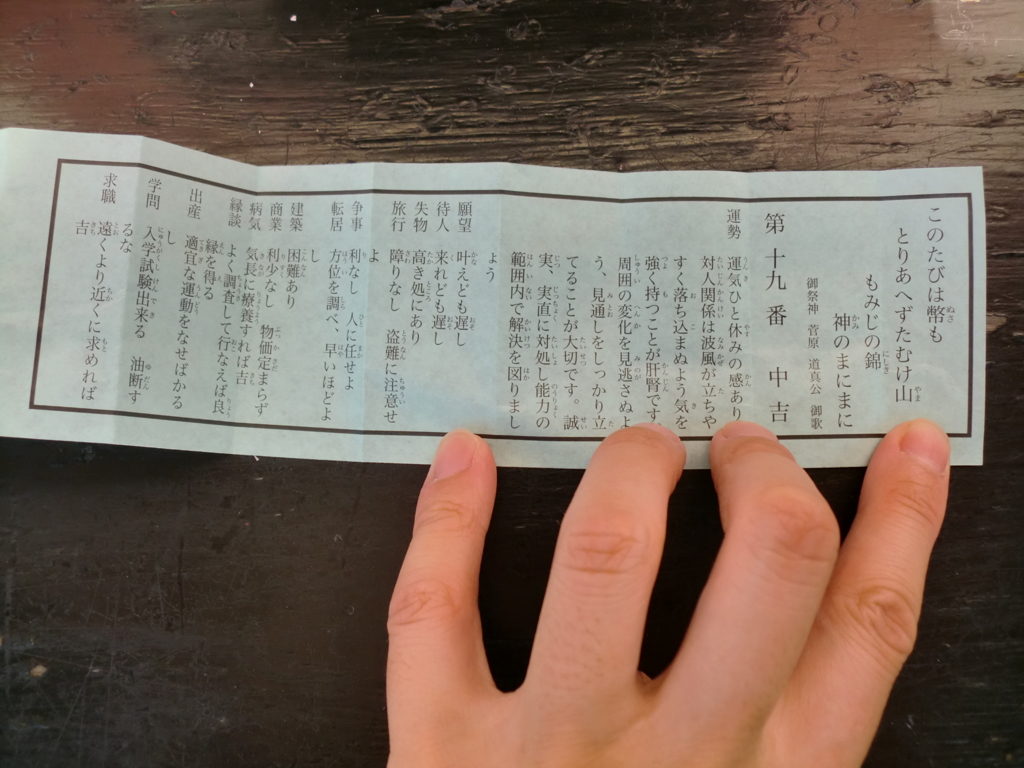 このたびは幣も
とりあへずたむけ山
もみじの錦
神のまにまに
御祭神 菅原 道真公 御歌
第十九番 中吉
運勢 運気ひと休みの感あり
対人関係は波風が立ちや
すく落ち込まぬよう気を
強く持つことが肝腎です
周囲の変化を見逃さぬよ
う、見通しをしっかり立
てることが大切です。誠
実、実直に対処し能力の
範囲内で解決を図りまし
ょう
願望 叶えども遅し
待人 来れども遅し
失物 高き処にあり
旅行 障りなし 盗難に注意せ
よ
争事 利なし 人に任せよ
転居 方位を調べ、早いほどよ
し
建築 困難あり
商業 利少なし 物価定まらず
病気 気長に療養すれば吉
縁談 よく調査して行なえば良
縁を得る
出産 適宜な運動をなせばかる
し
学問 入学試験出来る 油断す
るな
求職 遠くより近くに求めれば
吉